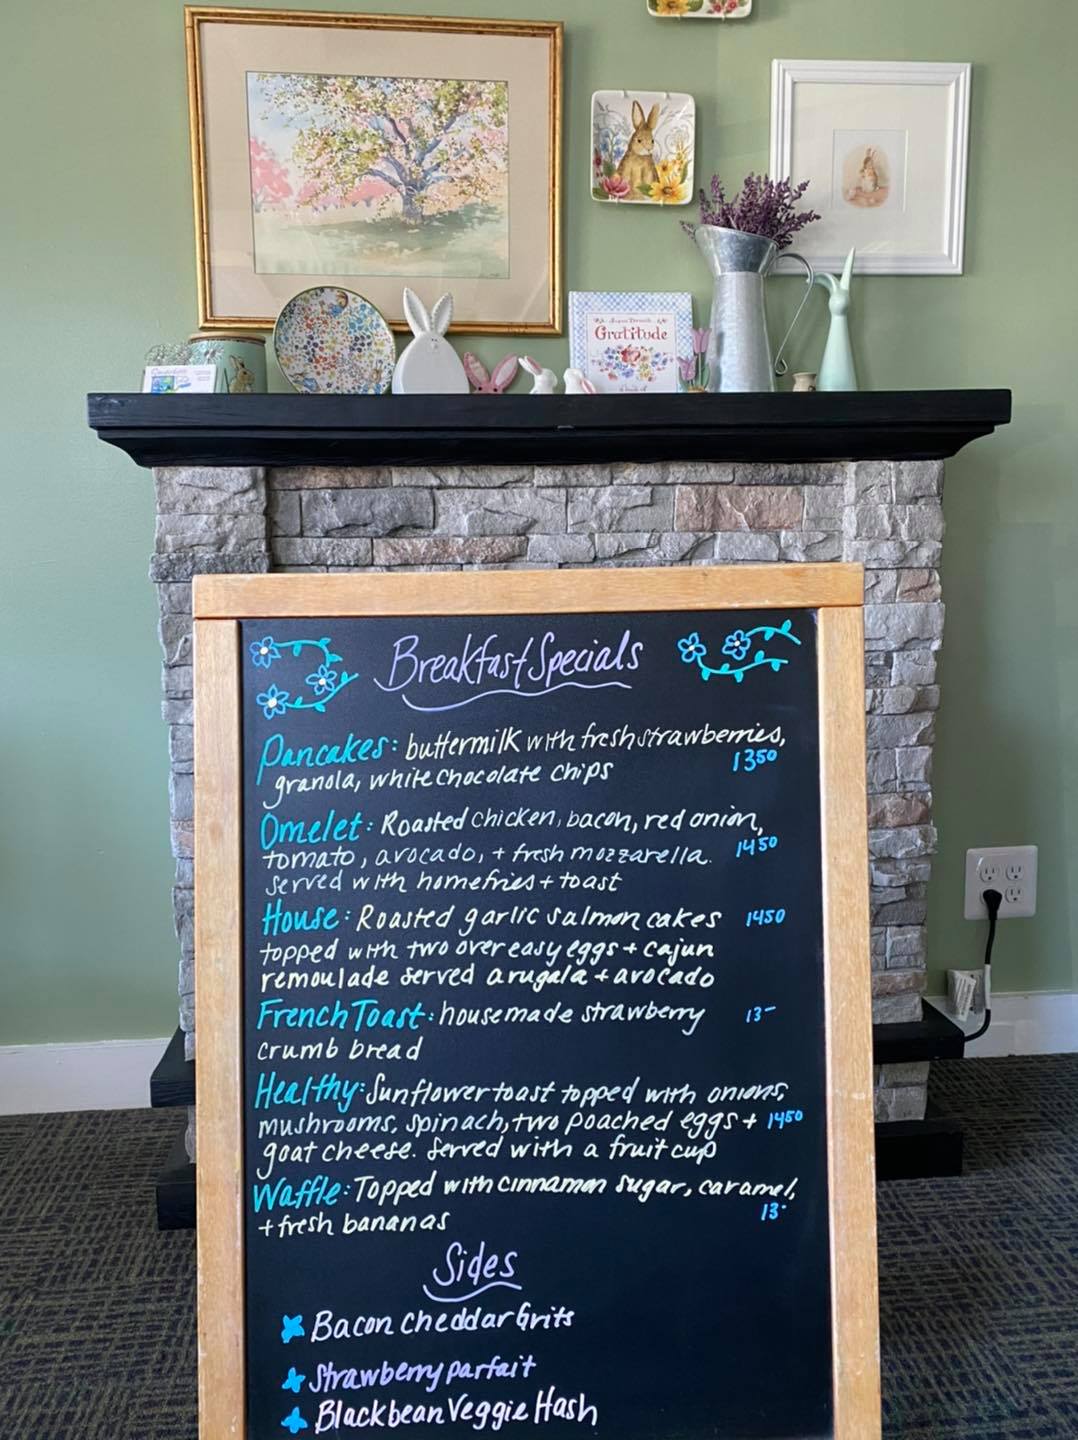 Gratitude
Breakfast Specials
Pancakes: buttermilk with fresh strawberries,
granola, white chocolate chips 1350
Omelet: Roasted chicken, bacon, red onion,
tomato, avocado, + fresh mozzarella. 1450
served with homefries + toast
House: Roasted garlic salmon cakes 1450
topped with two over easy eggs + cajun
remoulade served arugala + avocado
French Toast: housemade strawberry 13-
crumb bread
Healthy: Sunflower toast topped with onions,
mushrooms, spinach, two poached eggs + 1450
goat cheese. Served with a fruit cup
Waffle: Topped with cinnamon sugar, caramel,
+ fresh bananas 13-
Sides
Bacon Cheddar Grits
Strawberry parfait
Blackbean Veggie Hash